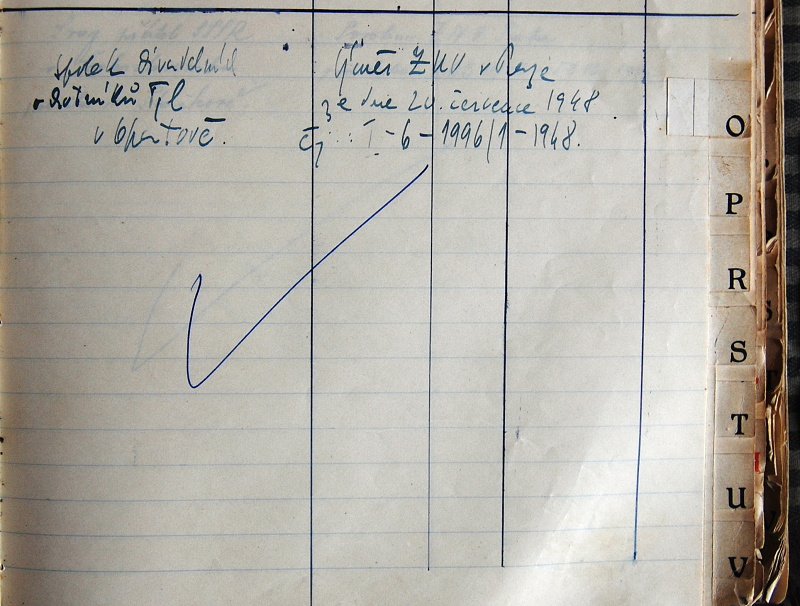 spolek divadelních
ochotníků Tyl
v Opatově.
Výměr ZNV v Praze
ze dne 20. července 1948
čj I-6-1996/1-1948.
O
P
R
S
T
U
V